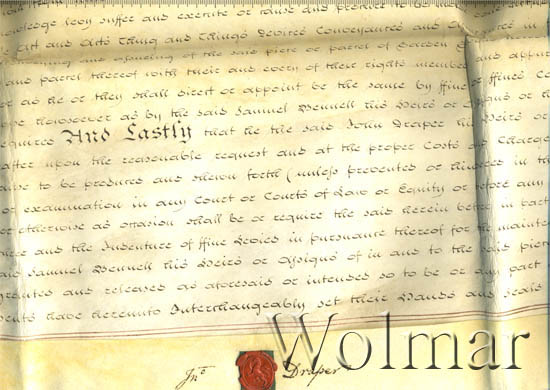 knowledge levy suffer and execute or cause and procure to be made
Act and Acts Thing and Things Devices Conveyances and
and assuring of the said piece or parcel of Garden
and parcel thereof with their and every of their rights members and appurt
or as he or they shall direct or appoint be the same by ffine or ffines
howsoever as by the said Samuel Bennell his Heirs or Assigns or th
required And Lastly that he the said John Draper his Heirs or
after upon the reasonable request and at the proper Costs and Charges
ause to be produced and shewn forth (unless prevented or hindred in th
or examination in any Court or Courts of Law or Equity or before any
or otherwise as occasion shall be or require the said herein before in part
and the Indenture of ffine Levied in pursuance thereof for the mainte
said Samuel Bennell his Heirs or Assigns of in and to the said piece
granted and released as aforesaid or intended so to be or any part
sents have hereunto Interchangeably set their Hands and Seals
Jno Draper
Wolmar